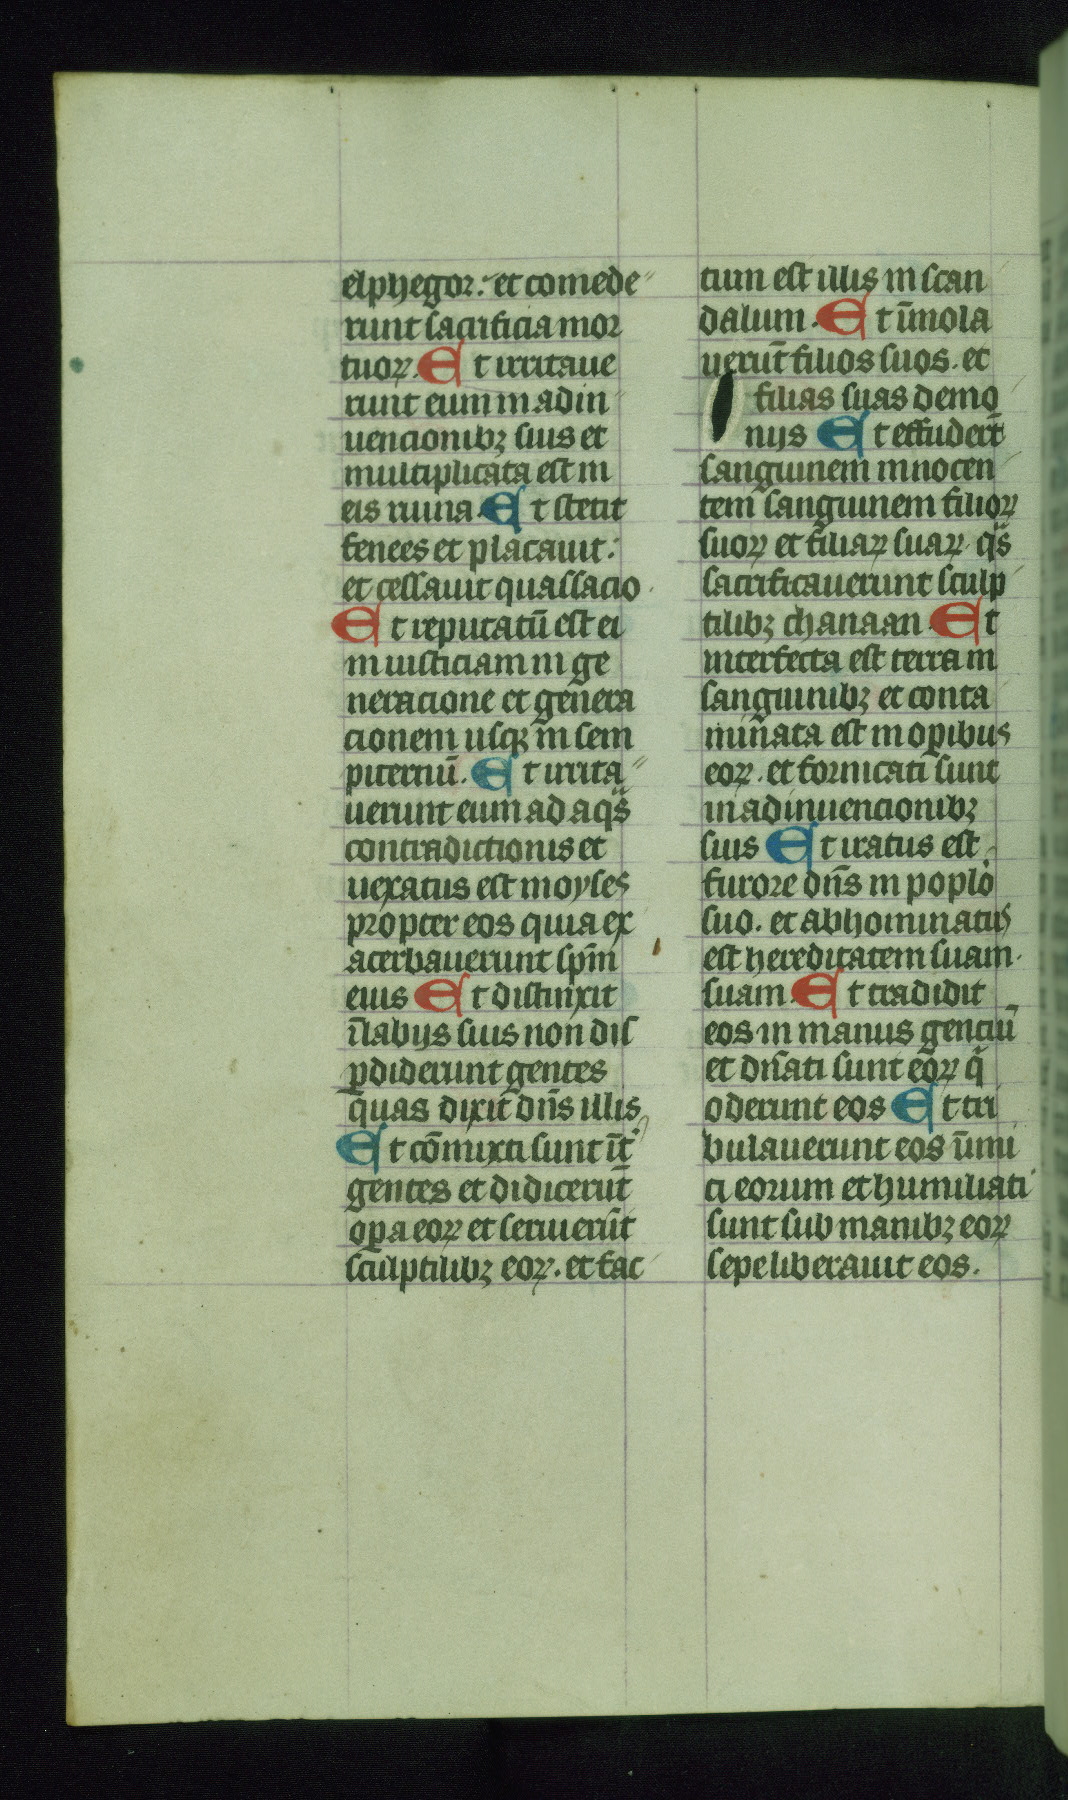 elphegor: et comede
runt sacrificia mor
tuoꝝ. Et irritaue
runt eum in adin
uencionibꝫ suis et
multiplicata est in
eis ruina. Et stetit
fenees et placauit:
et cessauit quassacio
Et reputatū est ei
in iusticiam in ge
neracione et genera
cionem usqꝫ in sem
piternū. Et irrita
uerunt eum ad aqͣs
contradictionis et
uexatus est moyses
propter eos quia ex
acerbauerunt spm̄
eius Et distinxit
ī labijs suis non dis
ꝑdiderunt gentes
quas dixit dn̄s illis
Et cōmixti sunt īt̄
gentes et didicerūt
oꝑa eoꝝ et seruierūt
sculptilibꝫ eoꝝ. et fac
tum est illis in scan
dalum. Et īmola
uerūt filios suos. et
filias suas demo
nijs Et effuderūt
sanguinem innocen
tem sanguinem filioꝝ
suoꝝ et filiaꝝ suaꝝ qͣs
sacrificauerunt sculp
tilibꝫ chanaan. Et
interfecta est terra in
sanguinibꝫ et conta
minata est in oꝑibus
eoꝝ. et fornicati sunt
in adinuencionibꝫ
suis Et iratus est
furore dn̄s in poplo
suo. et abhominatus
est hereditatem suam.
suam. Et tradidit
eos in manus genciū
et dn̄ati sunt eoꝝ q̄
oderunt eos Et tri
bulauerunt eos īimi
ci eorum et humiliati
sunt sub manibꝫ eoꝝ
sepe liberauit eos.